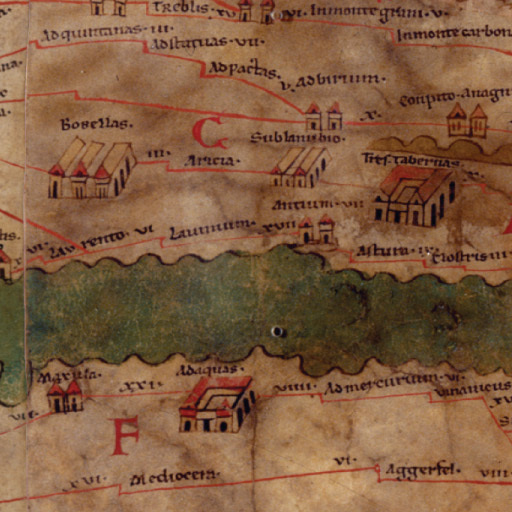 Treblis. XV VI. In monte grani. V.
Ad quintanas. III. In monte carbon
Ad statuas. VII.
Ad pactas. V. Ad birium.
Conpito anagn
Bobellas. C X.
Sublanubio.
III. Aricia. Tres tabernas. X.
Antium. VII
Laurento. VI Lauinium. XVII
Astura. IX. Clostris III
Maxula. XXI. Ad aquas. VIIII. Ad mercurium. VI.
VII. XV
F
XVI. Mediocera. VI. Aggerfel. VIII